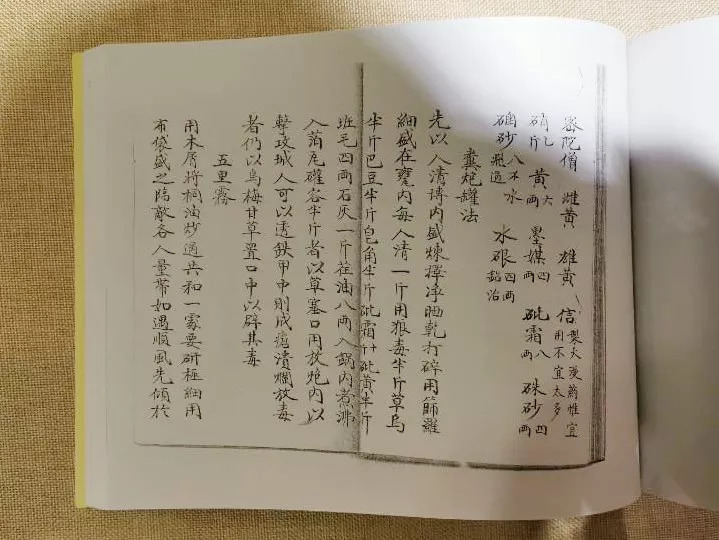 密陀僧 雌黃 雄黃 信 製大 用不宜太多
硝 斤 黃 兩 墨媒四兩 砒霜八兩 硃砂四兩
砂八 水 過 水銀四兩鉛治
糞炮罐法
先以人清磚內盛煉擇净晒乾打碎用篩羅
細盛在甕內每人清一斤用狼毒半斤草烏
半斤巴豆半斤皂角半斤砒霜 砒黃半斤
班毛四兩石灰一斤荏油八兩入鍋內煮沸
入薄瓦礶容半斤者以草塞口用放炮內以
擊攻城人可以透鉄甲中則成瘡潰爛放毒
者仍以烏梅甘草置口中以辟其毒
五里霧
用木屑將桐油炒過共和一處要研極細用
布袋盛之臨敵各人量帶如遇順風先傾於